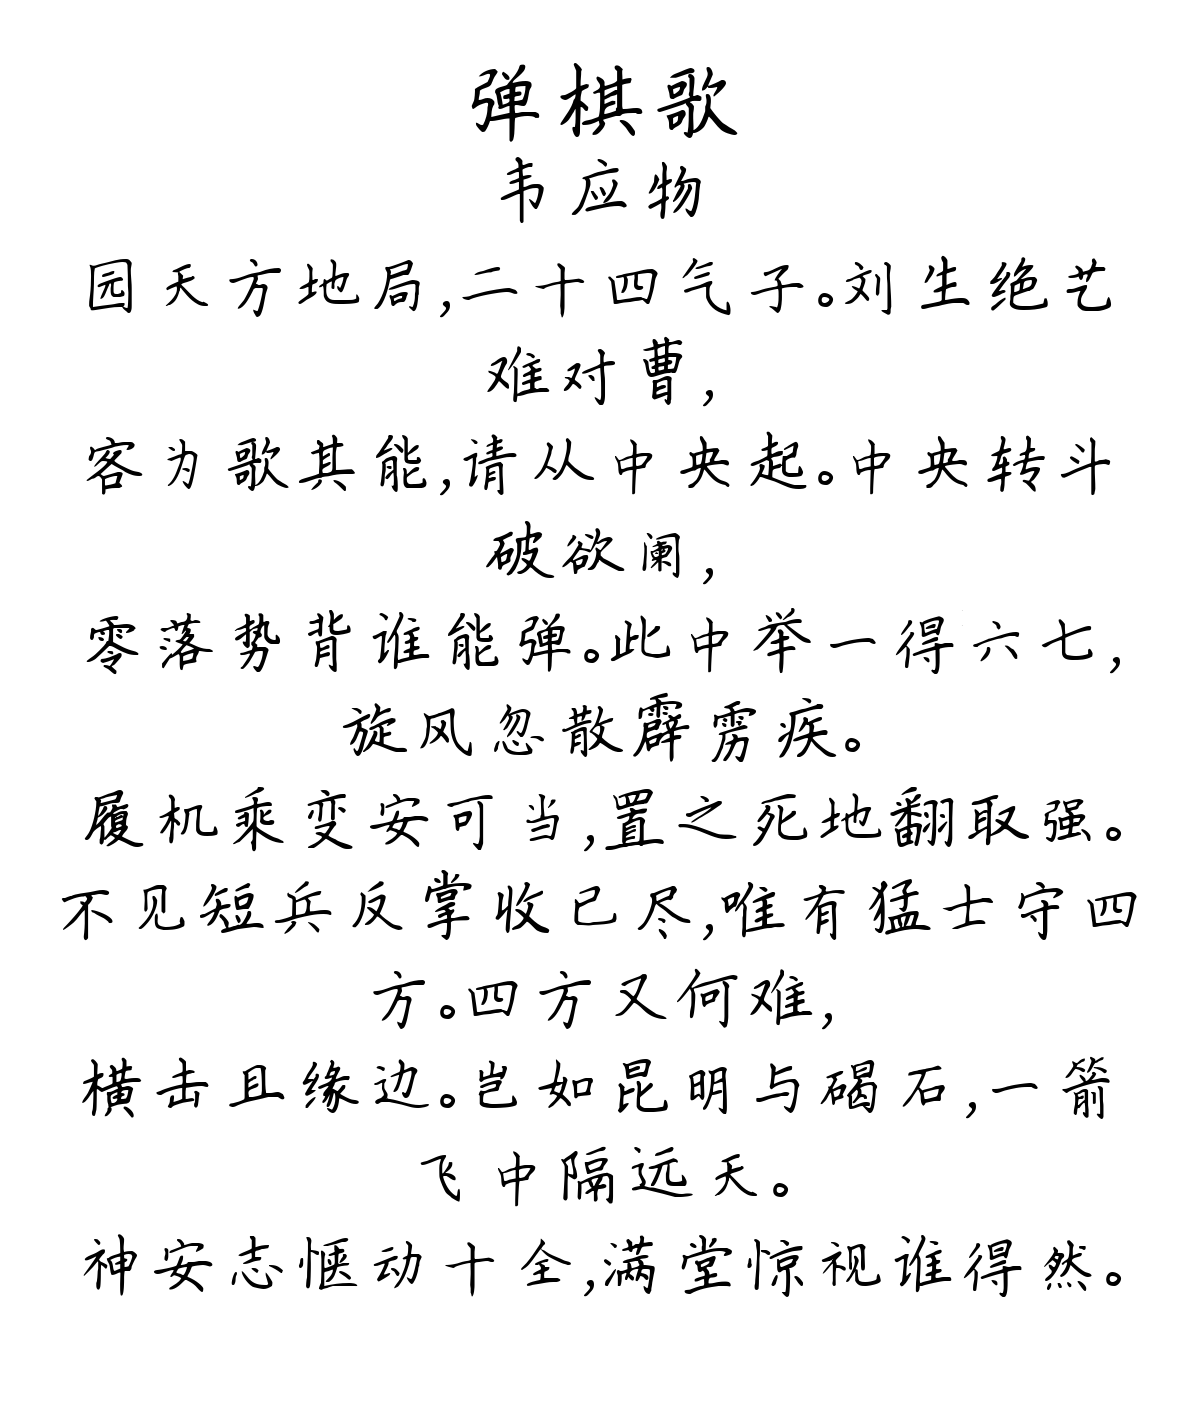 弹棋歌
韦应物
园天方地局,二十四气子。刘生绝艺
难对曹,
客为歌其能,请从中央起。中央转斗
破欲阑,
零落势背谁能弹。此中举一得六七,
旋风忽散霹雳疾。
履机乘变安可当,置之死地翻取强。
不见短兵反掌收已尽,唯有猛士守四
方。四方又何难,
横击且缘边。岂如昆明与碣石,一箭
飞中隔远天。
神安志惬动十全,满堂惊视谁得然。